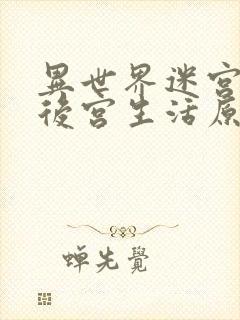 異世界迷宮
後宮生活原
蝉先覺